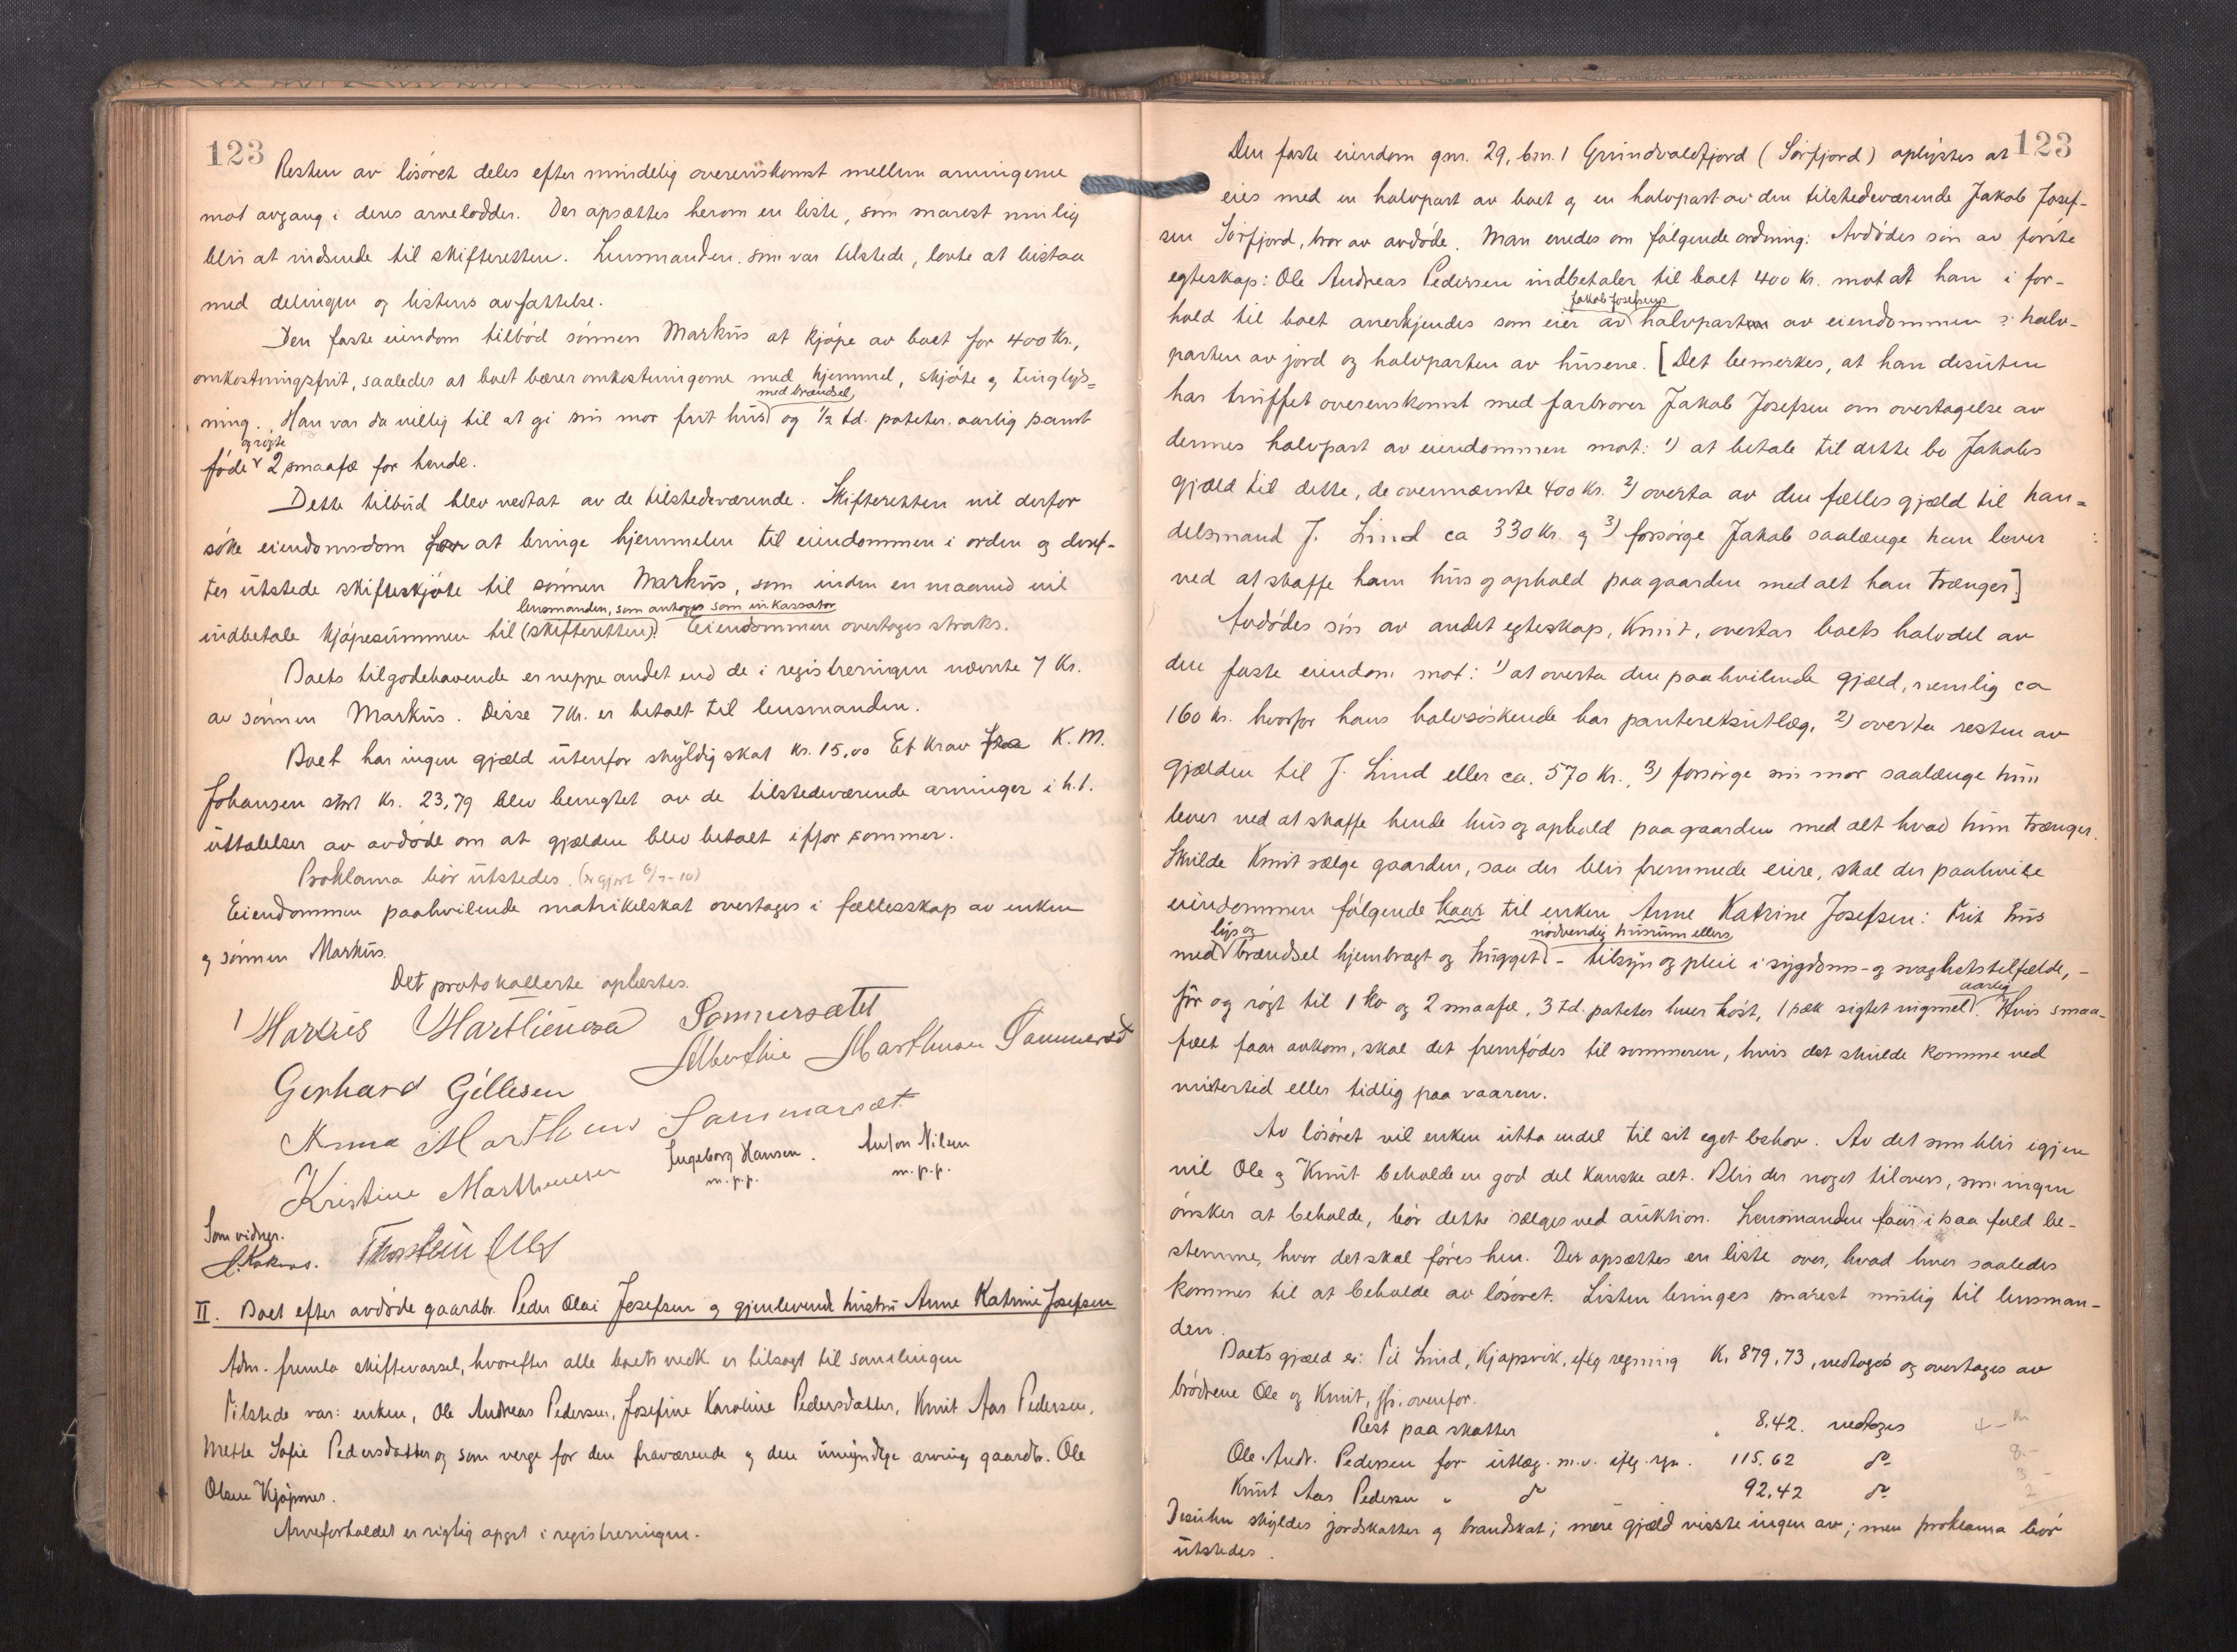 123
Resten av lösöret deles efter mindelig overenskomst mellem arvingerne
mot avgang i deres arvelodder. Der opsættes herom en liste, som snarest mulig
blir at indsende til skifteretten. Lensmanden, som var tilstede, lovte at bistaa
med delingen og listens avfattelse.
Den faste eiendom tilböd sönnen Markus at kjöpe av boet for 400 kr.,
omkostningsfrit, saaledes at boet bærer omkostningerne med hjemmel, skjöte og tinglys=
med brændsel,
ning. Han var da villig til at gi sin mor frit hus og ½ td. poteter aarlig samt
og rögte
föde 2 smaafæ for hende.
Dette tilbud blev vedtat av de tilstedeværende. Skifteretten vil derfor
söke eiendomsdom for at bringe hjemmelen til eiendommen i orden og deref-
ter utstede skifteskjöte til sönnen Markus, som inden en maaned vil
lensmanden, som antoges som inkassator
indbetale kjöpesummen til (skifteretten). Eiendommen overtages straks.
Boets tilgodehavende er neppe andet end de i registreringen nævnte 7 kr.
av sönnen Markus. Disse 7 kr. er betalt til lensmanden.
Boet har ingen gjæld utenfor skyldig skat kr. 15,00 Et krav fra K. M.
Johansen stort kr. 23,79 blev benegtet av de tilstedeværende arvinger i h.t.
uttalelser av avdöde om at gjælden blev betalt ifjor sommer.
Proklama bör utstedes. (er gjort 6/7-10)
Eiendommen paahvilende matrikelskat overtages i fællesskap av enken
og sönnen Markus.
Det protokollerte oplæstes.
Markus Marthinesen Sommersætet
Albertine Marthinsen Sommerset
Gerhard Gillesen
Anna Marthens Sammarsæt
Kristine Marthinesen Ingeborg Hansen. Anton Nilsen
m.p.p. m.p.p.
Som vidner.
Thorstein
II. Boet efter avdöde gaardbr. Peder Olai Josefsen og gjenlevende hustru Anne Katrine Josefsen
Adm. fremla skiftevarsel, hvorefter alle boets vedk. er tilsagt til samlingen
Tilstede var: enken, Ole Andreas Pedersen, Josefine Karoline Pedersdatter, Knut Aas Pedersen,
Mette Sofie Pedersdatter og som verge for den fraværende og den umyndige arving gaardbr. Ole
Olsen Kjöpsnes.
Arveforholdet er rigtig opgit i registreringen.
123
Den faste eiendom gnr. 29, bnr. 1 Grundvaldfjord (Sörfjord) oplystes at
eies med en halvpart av boet og en halvpart av den tilstedeværende Jakob Josef-
sen Sörfjord, bror av avdöde. Man enedes om fölgende ordning: Avdödes sön av förste
egteskap: Ole Andreas Pedersen indbetaler til boet 400 kr. mot at han i for-
Jakob Josefsens
hold til boet anerkjendes som eier av halvparten av eiendommen ɔ: halv-
parten av jord og halvparten av husene. [Det bemerkes, at han desuten
har truffet overenskomst med farbrorer Jakob Josefsen om overtagelse av
dennes halvpart av eiendommen mot: 1) at betale til dette bo Jakobs
gjæld til dette, de ovennævnte 400 kr. 2) overta av den fælles gjæld til han=
delsmand J. Lind ca 330 kr. og 3) forsörge Jakob saalænge han lever
ved at skaffe ham hus og ophold paa gaarden med alt han trænger]
Avdödes sön av andet egteskap, Knut, overtar boets halvdel av
den faste eiendom mot: 1) at overta den paahvilende gjæld, nemlig ca
160 kr. hvorfor hans halvsöskende har panteretsutlæg, 2) overta resten av
gjælden til J. Lind eller ca. 570 kr., 3) forsörge sin mor saalænge hun
lever ved at skaffe hende hus og ophold paa gaarden med alt hvad hun trænger.
Skulde Knut sælge gaarden, saa der blir fremmede eiere, skal der paahvile
eiendommen fölgende kaar til enken Anne Katrine Josefsen: Frit hus
lys og nödvendig husrum ellers,
med brændsel hjembragt og hugget - tilsyn og pleie i sygdoms- og svaghetstilfælde, -
aarlig
fôr og rögt til 1 ko og 2 smaafæ, 3 td. poteter hver höst, 1 sæk sigtet rugmel. Hvis smaa-
fæet faar avkom, skal det fremfödes til sommeren, hvis det skulde komme ved
vintertid eller tidlig paa vaaren.
Av lösöret vil enken utta endel til sit eget behov. Av det som blir igjen
vil Ole og Knut beholde en god del kanske alt. Blir der noget tilovers, som ingen
önsker at beholde, bör dette sælges ved auktion. Lensmanden faar i saa fald be-
stemme, hvor det skal föres hen. Der opsættes en liste over, hvad hver saaledes
kommer til at beholde av lösöret. Listen bringes snarest mulig til lensman-
den.
Boets gjæld er: Til Lind, Kjöpsvik, iflg regning Kr 879,73, vedtoges og overtages av
brödrene Ole og Knut, jfr. ovenfor.
Rest paa skatter " 8,42. vedtoges 4 - kr
Ole Andr. Pedersen for utlæg m.v. iflg. rgn. 115.62 do 8.-
Knut Aas Pedersen " do 92,42 do 3 -
2
Desuten skyldes jordskatter og brandskat; mere gjæld visste ingen av; men proklama bör
utstedes.